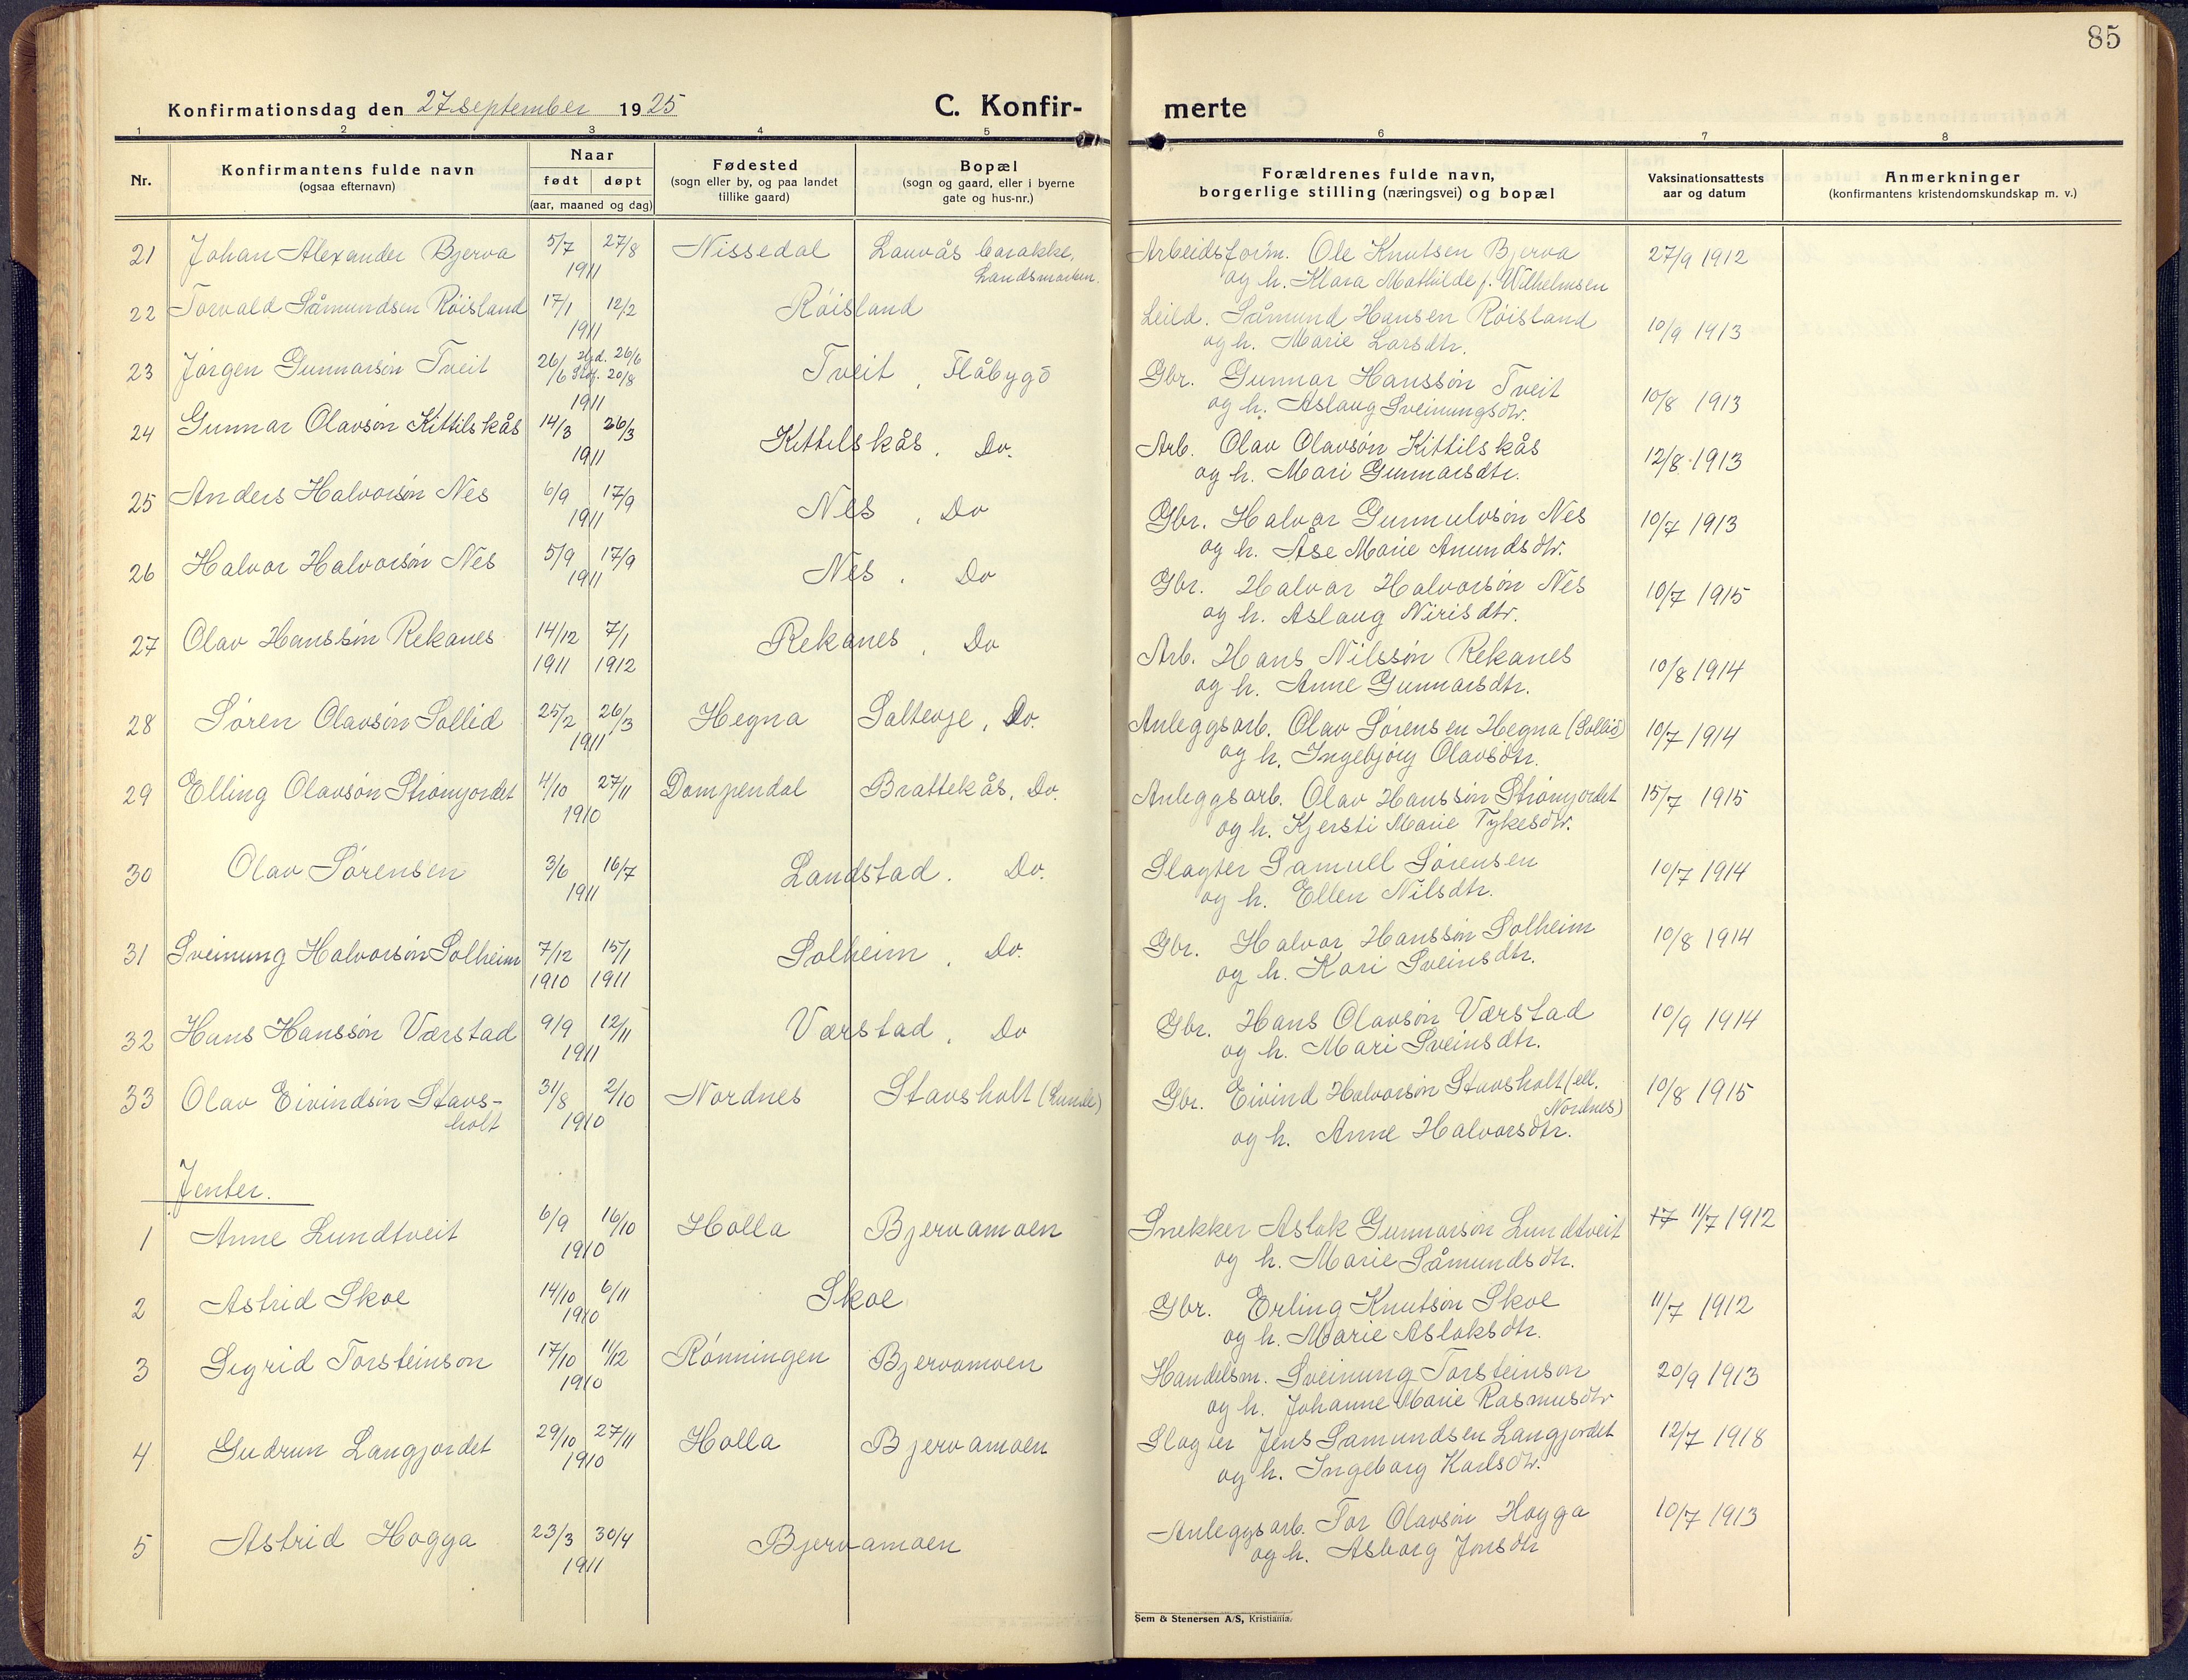 85
Konfirmationsdag den 27 september 1925 C. Konfir-merte
1 2 3 4 5 6 7 8
Nr.
Konfirmantens fulde navn
(ogsaa efternavn)
Naar
født døpt
(aar, maaned og dag)
Fødested
(sogn eller by, og paa landet
tillike gaard)
Bopæl
(sogn og gaard, eller i byerne
gate og hus-nr.)
Forældrenes fulde navn,
borgerlige stilling (næringsvei) og bopæl
Vaksinationsattests
aar og datum
Anmerkninger
(konfirmantens kristendomskundskap m. v.)
21 Johan Alexander Bjerva 5/7 27/8 Nissedal Lauvås barakke, Arbeidsform. Ole Knutsen Bjerva 27/9 1912
1911 Landsmarken. og h. Klara Mathilde f. Wilhelmsen
22 Torvald Såmundsen Röisland 17/1 12/2 Röisland Leild. Såmund Hansen Röisland 10/9 1913
1911 og h. Marie Larsdtr.
23 Jørgen Gunnarsön Tveit 26/6 Hjd. 26/6 Tveit, Flåbygd Gbr. Gunnar Hanssön Tveit 10/8 1913
20/8
1911 og h. Aslaug Sveinungsdtr.
24 Gunnar Olavsön Kittilskås 14/3 26/3 Kittilskås, Do. Arb. Olav Olavsön Kittilskås 12/8 1913
1911 og h. Mari Gunnarsdtr.
25 Anders Halvorsön Nes 6/9 17/9 Nes, Do Gbr. Halvor Gunnulvsön Nes 10/7 1913
1911 og h. Åse Marie Anundsdtr.
26 Halvor Halvorsön Nes 5/9 17/9 Nes, Do Gbr. Halvor Halvorsön Nes 10/7 1915
1911 og h. Aslaug Nirisdtr.
27 Olav Hanssön Rekanes 14/12 7/1 Rekanes, Do Arb. Hans Nilssön Rekanes 10/8 1914
1911 1912 og h. Anne Gunnarsdtr.
28 Søren Olavsön Sollid 25/2 26/3 Hegna Salteoje, Do. Anleggsarb. Olav Sørensen Hegna (Sollid) 10/7 1914
1911 og h. Ingebjörg Olavsdtr.
29 Elling Olavsön Strömjordet 4/10 27/11 Dampendal Brattekås, Do. Anleggsarb. Olav Hanssön Strömjordet 15/7 1915
1910 og h. Kjersti Marie Tykesdtr.
30 Olav Sørensen 3/6 16/7 Landstad. Do. Slagter Samuel Sørensen 10/7 1914
1911 og h. Ellen Nilsdtr.
31 Sveinung Halvorsön Solheim 7/12 15/1 Solheim, Do. Gbr. Halvor Hanssön Solheim 10/8 1914
1910 1911 og h. Kari Sveinsdtr.
32 Hans Hanssön Værstad 9/9 12/11 Værstad, Do Gbr. Hans Olavsön Værstad 10/9 1914
1911 og h. Mari Sveinsdtr.
33 Olav Eivindsön Stavs- 31/8 2/10 Nordnes Stavsholt (Lunde) Gbr. Eivind Halvorsön Stavsholt (ell. 10/8 1915
holt 1910 Nordnes)
og h. Anne Halvorsdtr.
Jenter.
1 Anne Lundtveit 6/9 16/10 Holla Bjervamoen Snekker Aslak Gunnarsön Lundtveit 17 11/7 1912
1910 og h. Marie Såmundsdtr.
2 Astrid Skoe 14/10 6/11 Skoe Gbr. Erling Knutsön Skoe 11/7 1912
1910 og h. Marie Aslaksdtr.
3 Sigrid Torsteinson 17/10 11/12 Rönningen Bjervamoen Handelsm. Sveinung Torsteinson 20/9 1913
1910 og h. Johanne Marie Rasmusdtr
4 Gudrun Langjordet 29/10 27/11 Holla Bjervamoen Slagter Jens Samundsen Langjordet 12/7 1918
1910 og h. Ingeborg Karlsdtr.
5 Astrid Hogga 23/3 30/4 Bjervamoen Anleggsarb. Tor Olavsön Hogga 10/7 1913
1911 og h. Asborg Jonsdtr
Sem & Stenersen A/S, Kristiania.